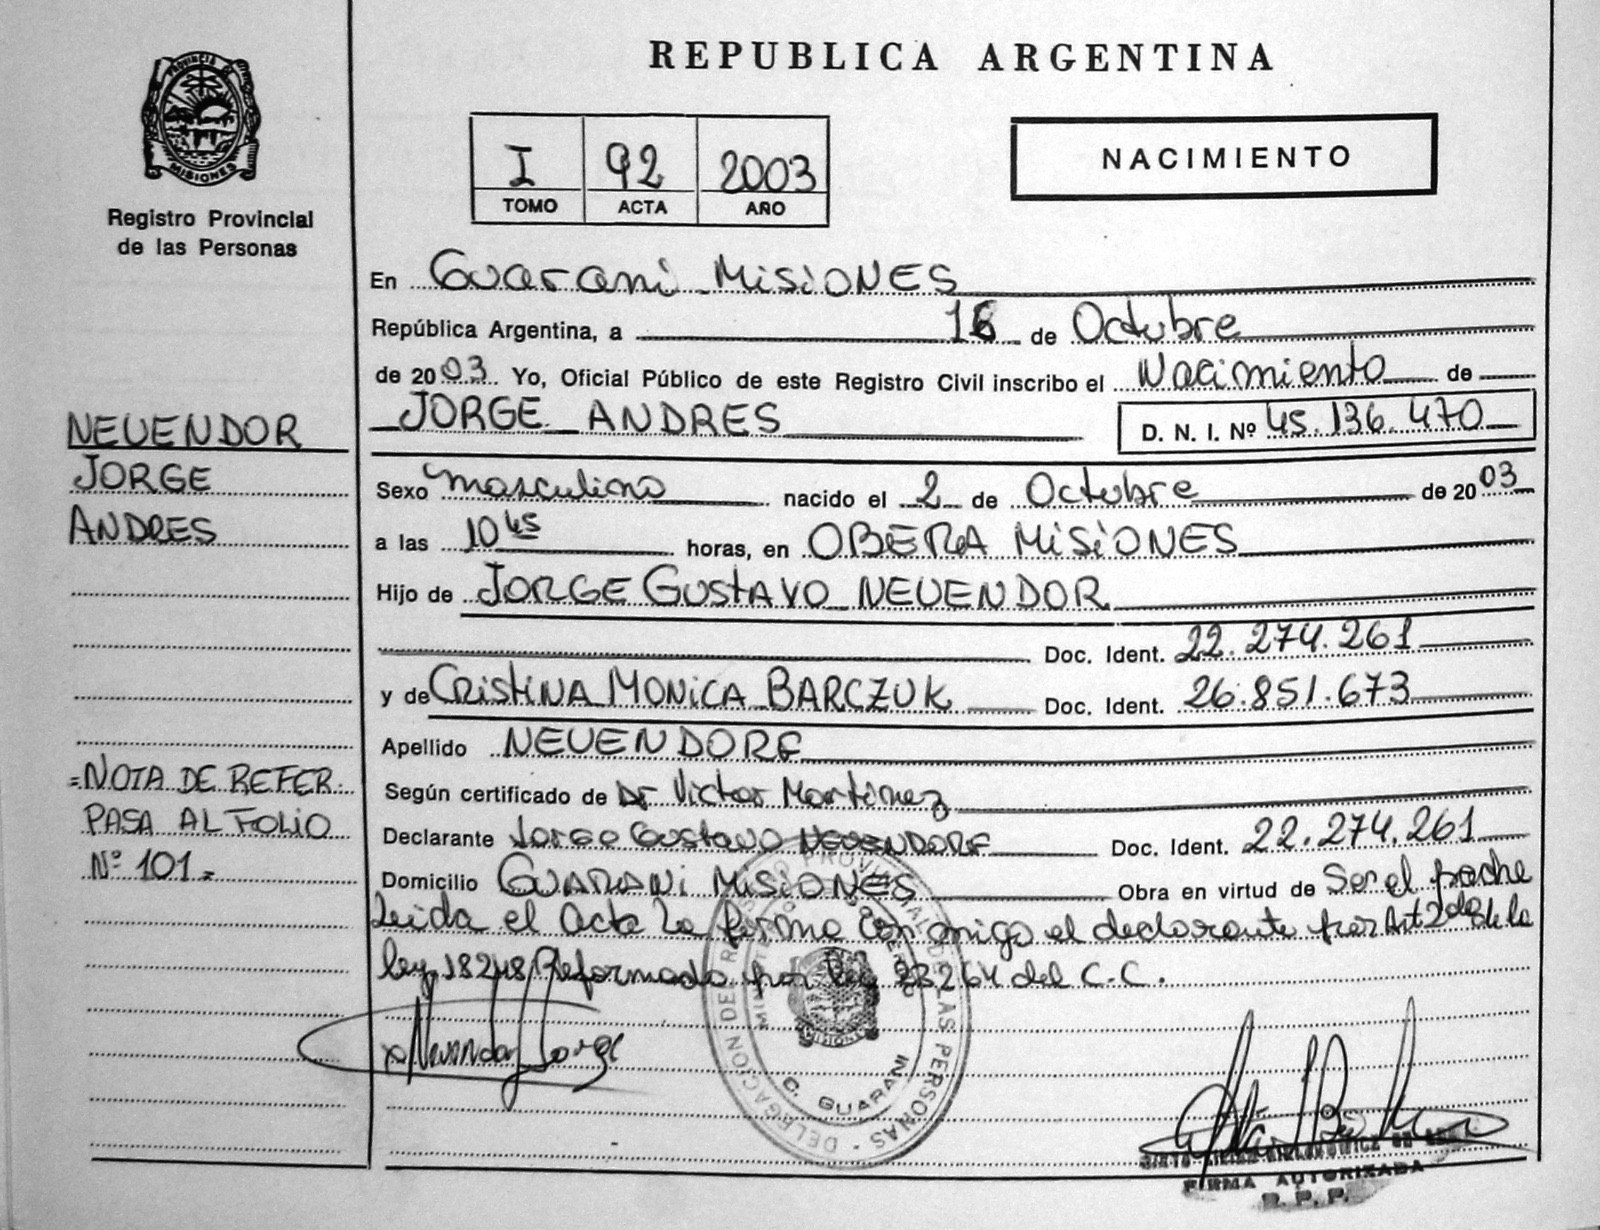 PROVINCIA DE
MISIONES
Registro Provincial
de las Personas
NEUENDOR
JORGE
ANDRES
=NOTA DE REFER.
PASA AL FOLIO
Nº 101.=
REPUBLICA ARGENTINA
I 92 2003
TOMO ACTA AÑO
NACIMIENTO
En Guarani Misiones
República Argentina, a 16 de Octubre
de 2003 Yo, Oficial Público de este Registro Civil inscribo el Nacimiento de
JORGE ANDRES D. N. I. Nº 45.136.470
Sexo masculino nacido el 2 de Octubre de 2003
a las 10 45 horas, en OBERA MISIONES
Hijo de JORGE GUSTAVO NEUENDOR
Doc. Ident. 22.274.261
y de CRISTINA MONICA BARCZUK Doc. Ident. 26.851.673
Apellido NEUENDORF
Según certificado de Dr Victor Martinez
Declarante Jorge Gustavo NEUENDORF Doc. Ident. 22.274.261
Domicilio GUARANI MISIONES Obra en virtud de Ser el padre
Leida el Acta La firma Con migo el declarante por Art 2do de la
ley 18248 Reformado por ley 23264 del C.C.
Jorge
DELEGACION DEL REGISTRO PROVINCIAL DE LAS PERSONAS
C. GUARANI
FIRMA AUTORIZADA
R. P. P.